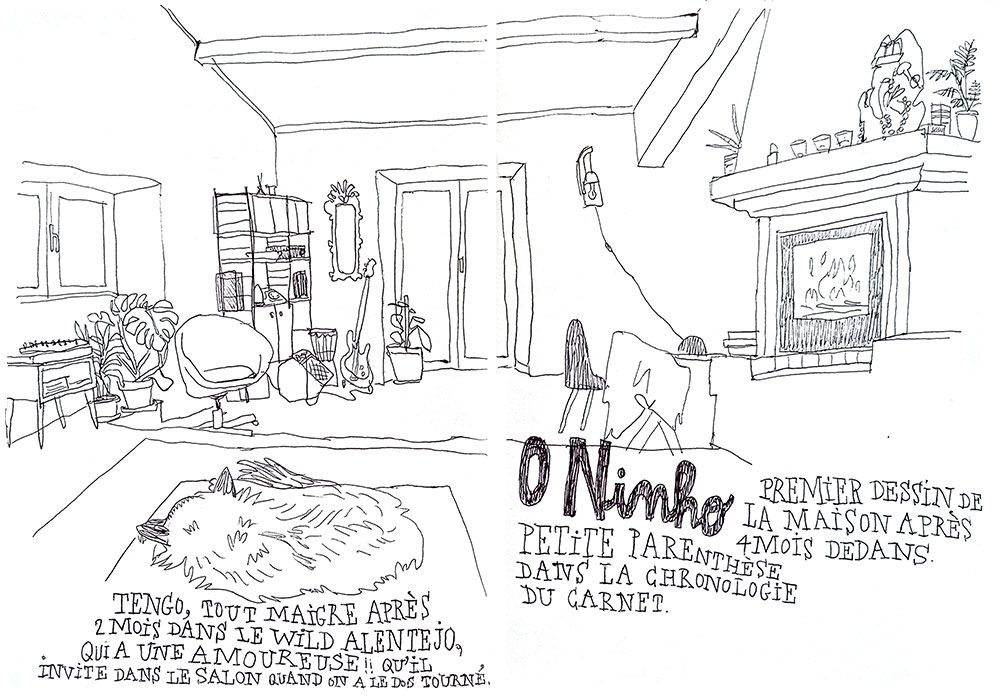 TENGO, TOUT MAIGRE APRÈS
2 MOIS DANS LE WILD ALENTEJO,
QUI A UNE AMOUREUSE!! QU'IL
INVITE DANS LE SALON QUAND ON A LE DOS TOURNÉ.
O Ninho
PREMIER DESSIN DE
LA MAISON APRÈS
4 MOIS DEDANS.
PETITE PARENTHÈSE
DANS LA CHRONOLOGIE
DU CARNET.